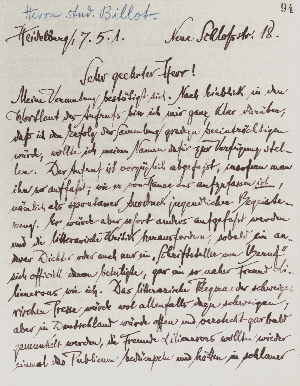 Herrn stud. Billot.
94
Heidelberg, 7. 5. 1.
Neue Schlossstr. 18.
Sehr geehrter Herr!
Meine Vermutung bestätigt sich. Nach Einblick in den
Wortlaut des Aufrufs bin ich mir ganz klar darüber,
daß ich den Erfolg der Sammlung geradezu beeinträchtigen
würde, wollte ich meinen Namen dafür zur Verfügung stel-
len. Der Aufruf ist vorzüglich abgefaßt, insofern man
ihn so auffaßt, wie er von Ihnen aus aufzufassen ist,
nämlich als spontaner Ausdruck jugendlicher Begeiste-
rung. Er würde aber sofort anders aufgefaßt werden
und die litterarische Kritik herausfordern, sobald ein an-
derer Dichter oder auch nur ein „Schriftsteller von Beruf"
sich officiell daran beteiligte, gar ein so naher Freund Lili-
encrons wie ich. Das litterarische Klagma der schweize-
rischen Presse würde wol allenfalls dazu schweigen,
aber in Deutschland würde offen und versteckt gar bald
gemunkelt werden, die Freunde Liliencrons wollten wieder
einmal das Publicum und hätten in schlauer